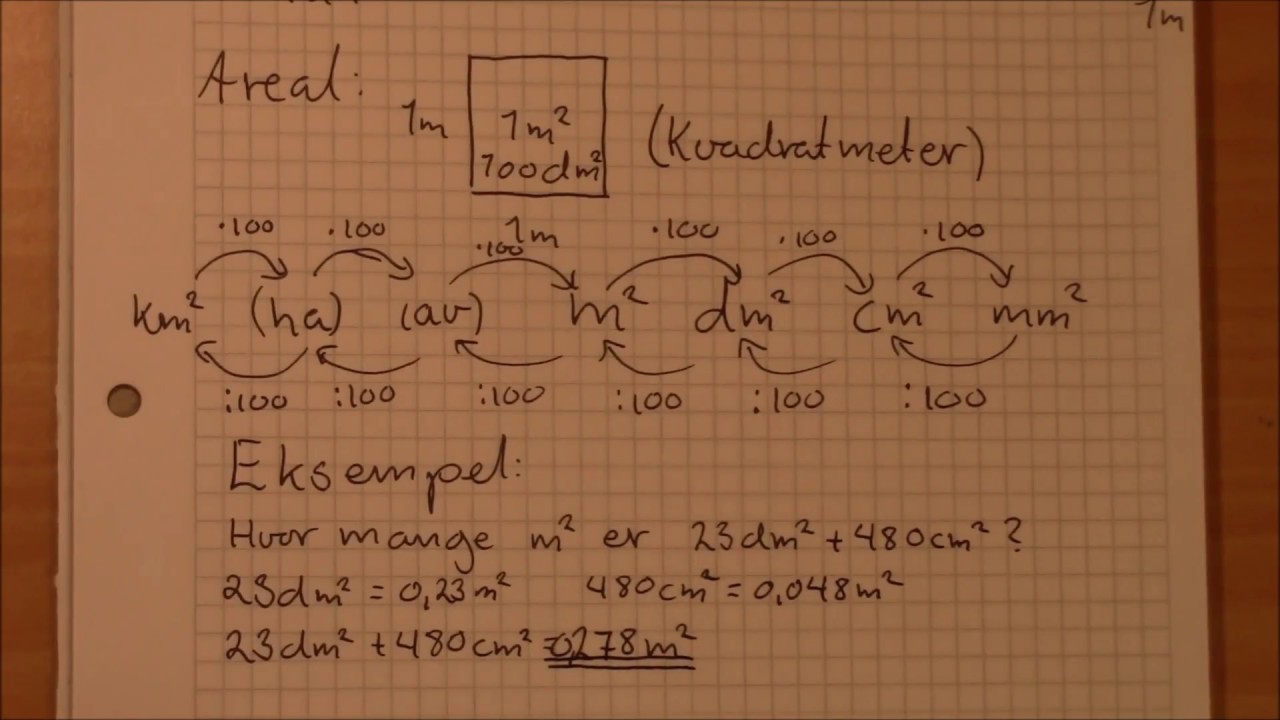 1m
Areal:
1m 1m² (Kvadratmeter)
100dm²
1m
·100 ·100 ·100 ·100 ·100 ·100
km² (ha) (ar) m² dm² cm² mm²
:100 :100 :100 :100 :100 :100
Eksempel:
Hvor mange m² er 23dm² + 480cm² ?
23dm² = 0,23m² 480cm² = 0,048m²
23dm² + 480cm² = 0,278m²